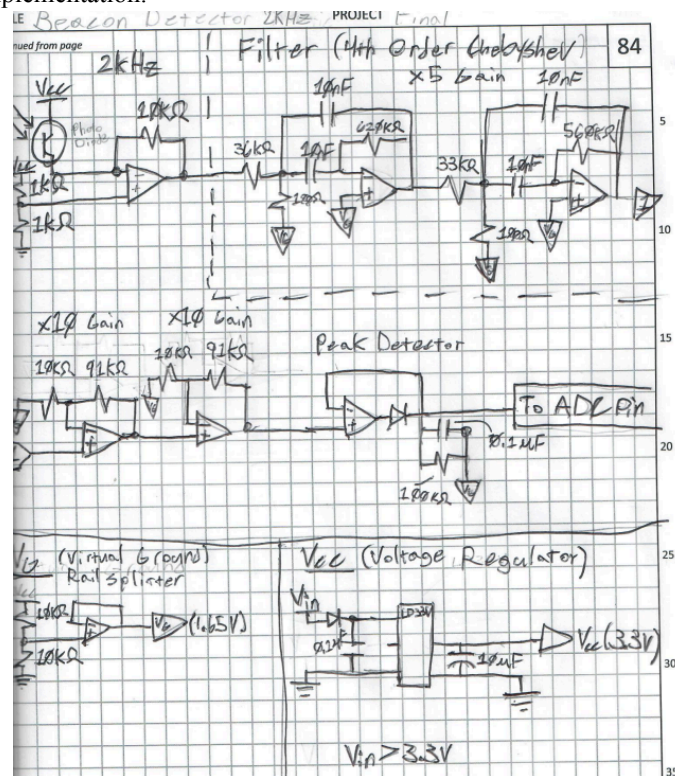 plementation.
LE Beacon Detector 2KHz PROJECT Final
nued from page
84
2kHz
Filter (4th Order Chebyshev)
x5 Gain
Vcc
Photo
Diode
10KΩ
10nF
10nF
36KΩ
10nF
620KΩ
33KΩ
10nF
560KΩ
1KΩ
1KΩ
VG
VG
5
10
15
20
25
30
35
x10 Gain
x10 Gain
10KΩ 91KΩ
10KΩ 91KΩ
Peak Detector
To ADC Pin
0.1μF
100KΩ
VG (Virtual Ground)
Rail splitter
10KΩ
10KΩ
VG (1.65V)
Vcc (Voltage Regulator)
Vin
0.1μF
10μF
Vcc (3.3V)
Vin > 3.3V